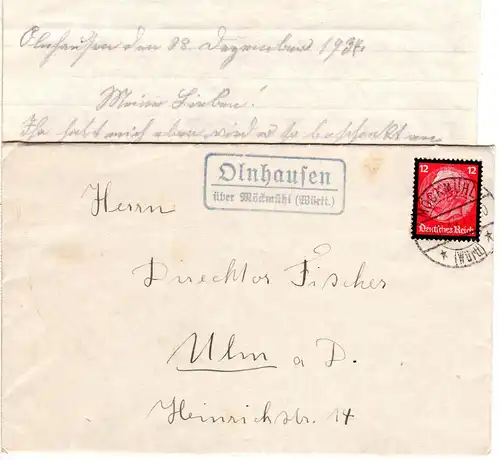 Olnhausen den 28. Dezember 1934.
Meine Lieben!
Ihr habt mich aber wieder so beschenkt
Olnhausen
über Möckmühl (Württ.)
12 12
Deutsches Reich
MÖCKMÜHL
(WÜRTT)
Herrn
Direktor Fischer
Ulm a D.
Heinrichstr. 14